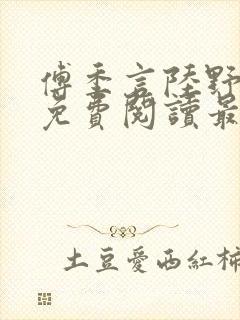 傅季言陸野
免費閱讀最
土豆愛西紅柿